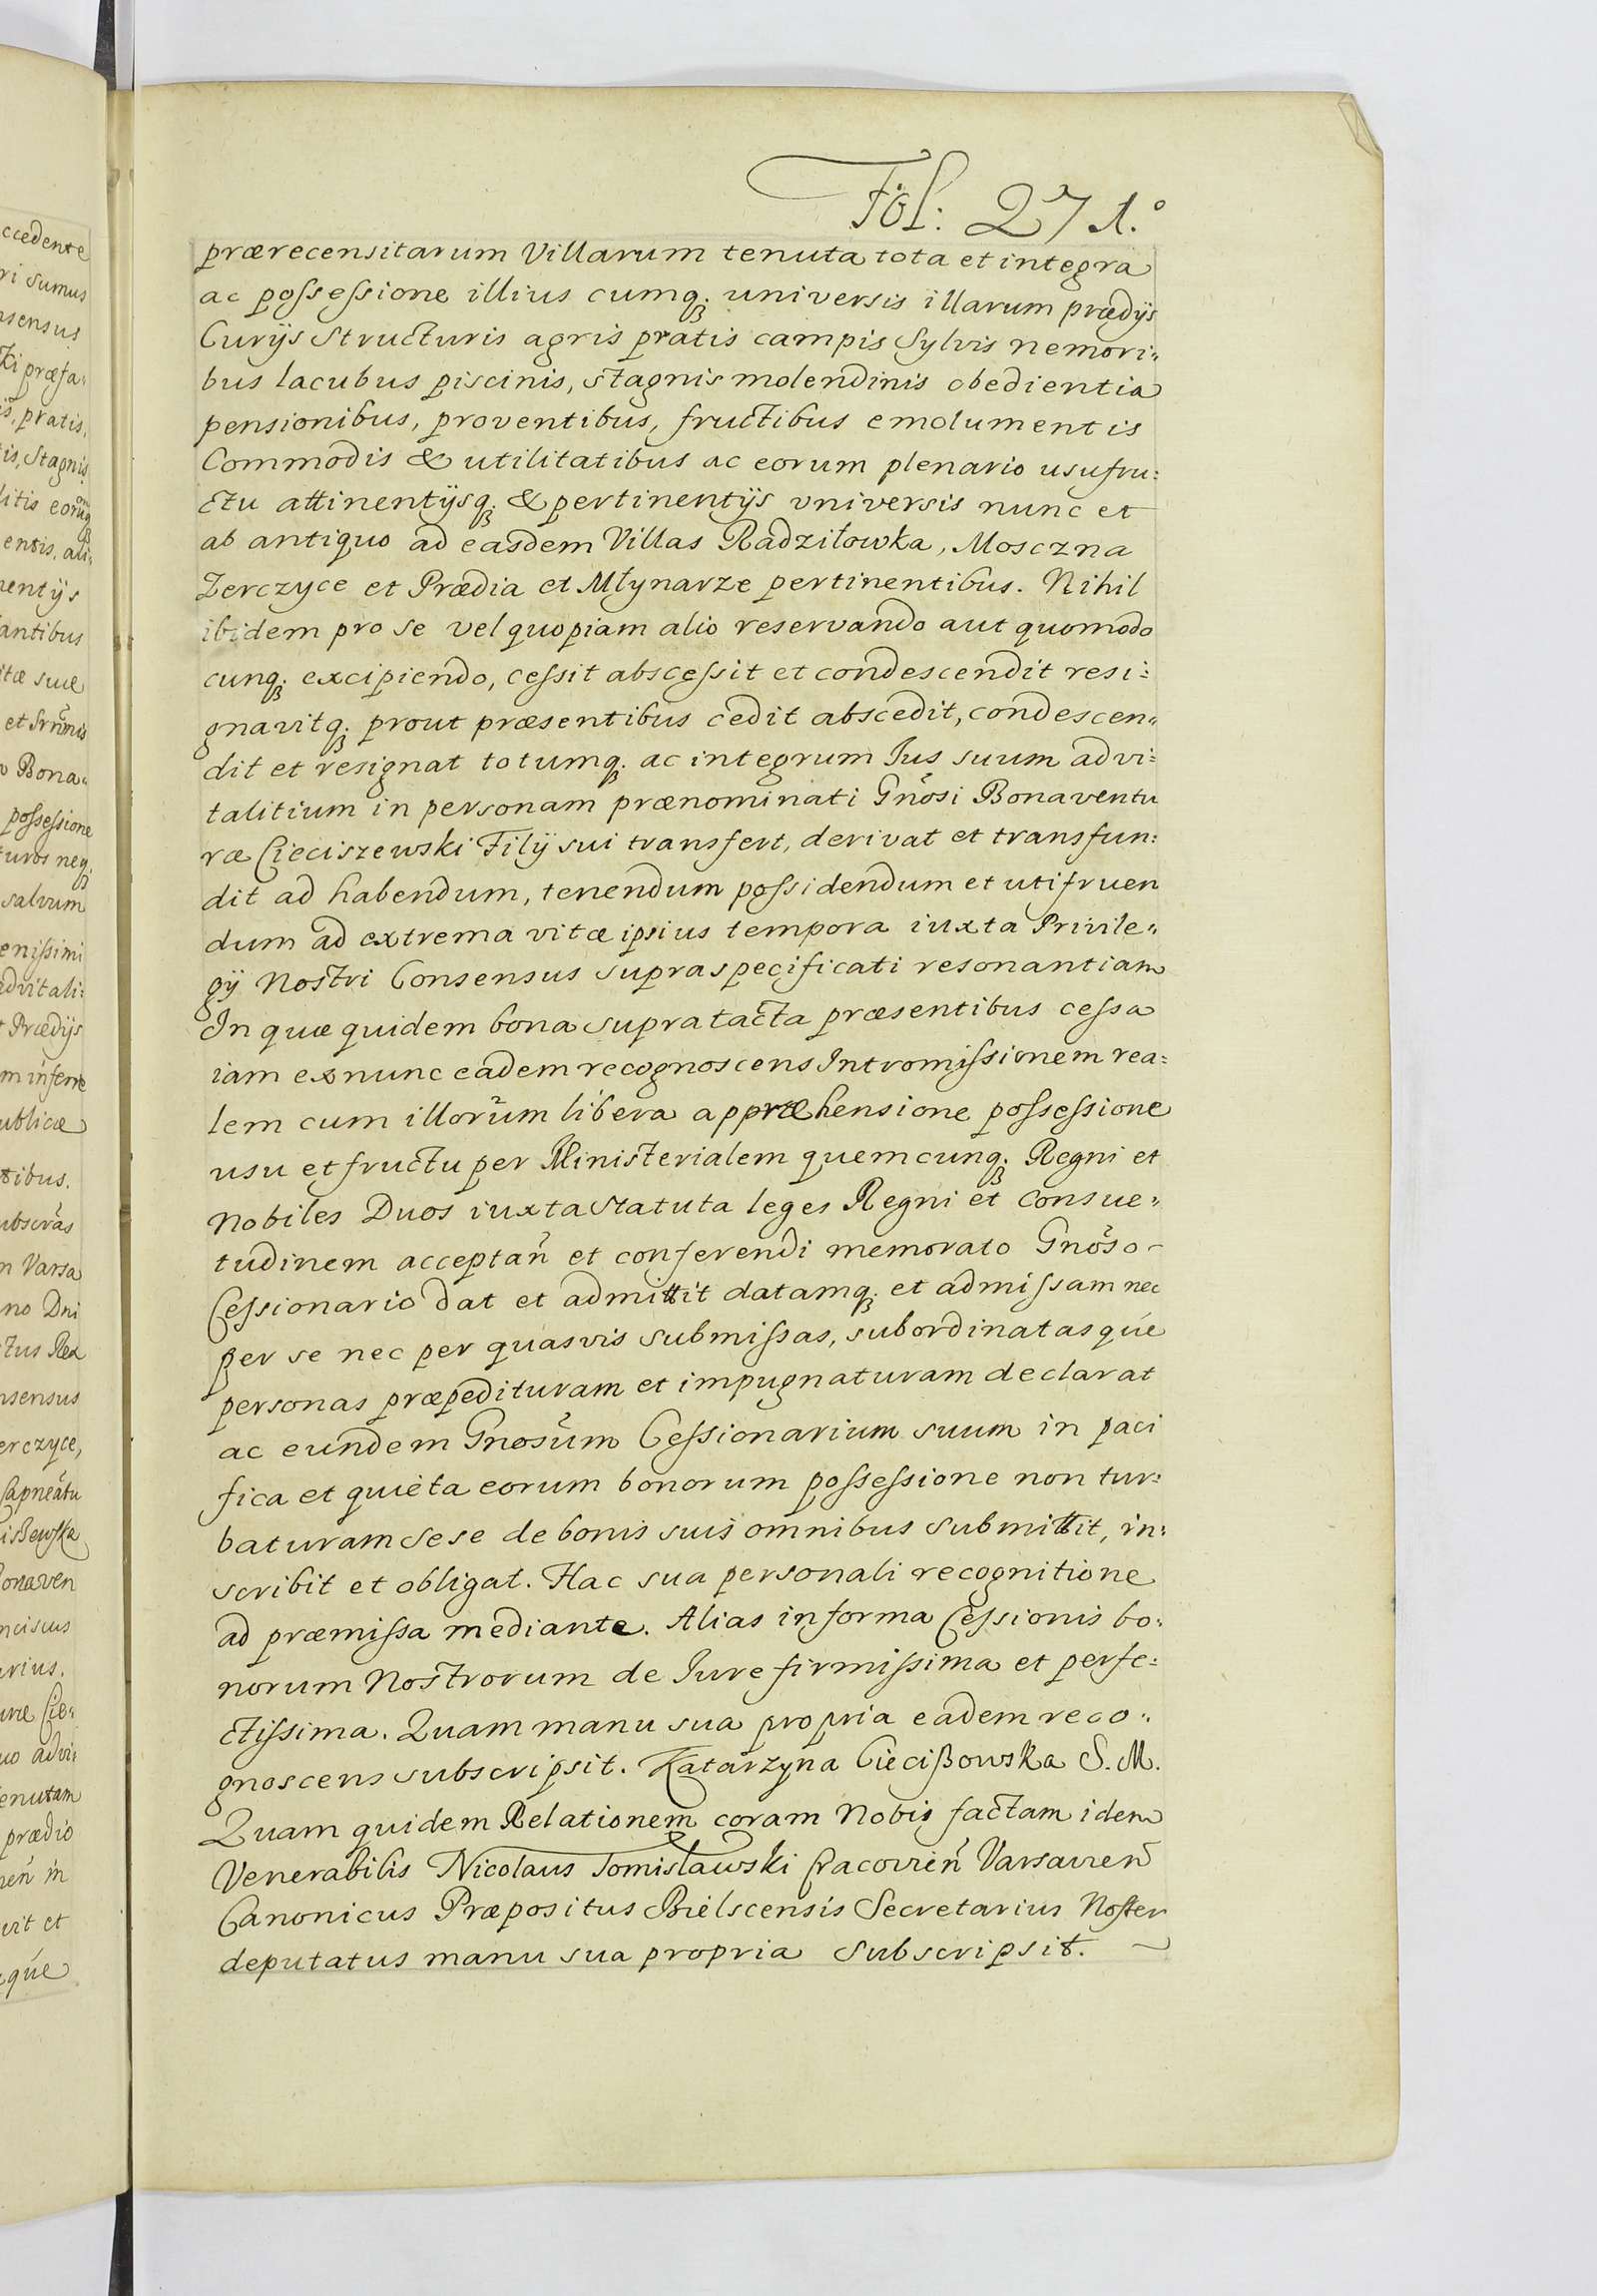 Fol: 271.
prærecensitarum Villarum tenuta tota et integra
ac possessione illius cumq; universis illarum prædijs
Curijs Structuris agris pratis campis Sylvis nemori:
bus lacubus piscinis, stagnis molendinis obedientia
pensionibus, proventibus, fructibus emolumentis
Commodis & utilitatibus ac eorum plenario usufru:
ctu attinentijsq; & pertinentijs universis nunc et
ab antiquo ad easdem Villas Radziłowka, Mosczna
Zerczyce et Prædia et Młynarze pertinentibus. Nihil
ibidem pro se vel quopiam alio reservando aut quomodo
cunq; excipiendo, cessit abscessit et condescendit resi:
gnavitq; prout præsentibus cedit abscedit, condescen:
dit et resignat totumq; ac integrum Jus suum advi:
talitium in personam prænominati Gnōsi Bonaventu
ræ Cieciszewski Filij sui transfert, derivat et transfun:
dit ad habendum, tenendum possidendum et utifruen
dum ad extrema vitæ ipsius tempora iuxta Privile:
gij Nostri Consensus supraspecificati resonantiam
In quæ quidem bona supratacta præsentibus cessa
iam ex nunc eadem recognoscens Intromissionem rea:
lem cum illorum libera appræhensione possessione
usu et fructu per Ministerialem quemcunq; Regni et
Nobiles Duos iuxta Statuta leges Regni et consue:
tudinem acceptan̄ et conferendi memorato Gnōso
Cessionario dat et admittit datamq; et admissam nec
per se nec per quasvis submissas, subordinatasque
personas præpedituram et impugnaturam declarat
ac eundem Gnosūm Cessionarium suum in paci
fica et quieta eorum bonorum possessione non tur:
baturam sese de bonis suis omnibus submittit, in:
scribit et obligat. Hac sua personali recognitione
ad præmissa mediante. Alias in forma Cessionis bo:
norum Nostrorum de Jure firmissima et perfe:
ctissima. Quam manu sua propria eadem reco:
gnoscens subscripsit. Katarzyna Ciecißowska S. M.
Quam quidem Relationem coram Nobis factam idem
Venerabilis Nicolaus Tomisławski Cracovien̄ Varsavien̄
Canonicus Præpositus Bielscensis Secretarius Noster
deputatus manu sua propria Subscripsit.